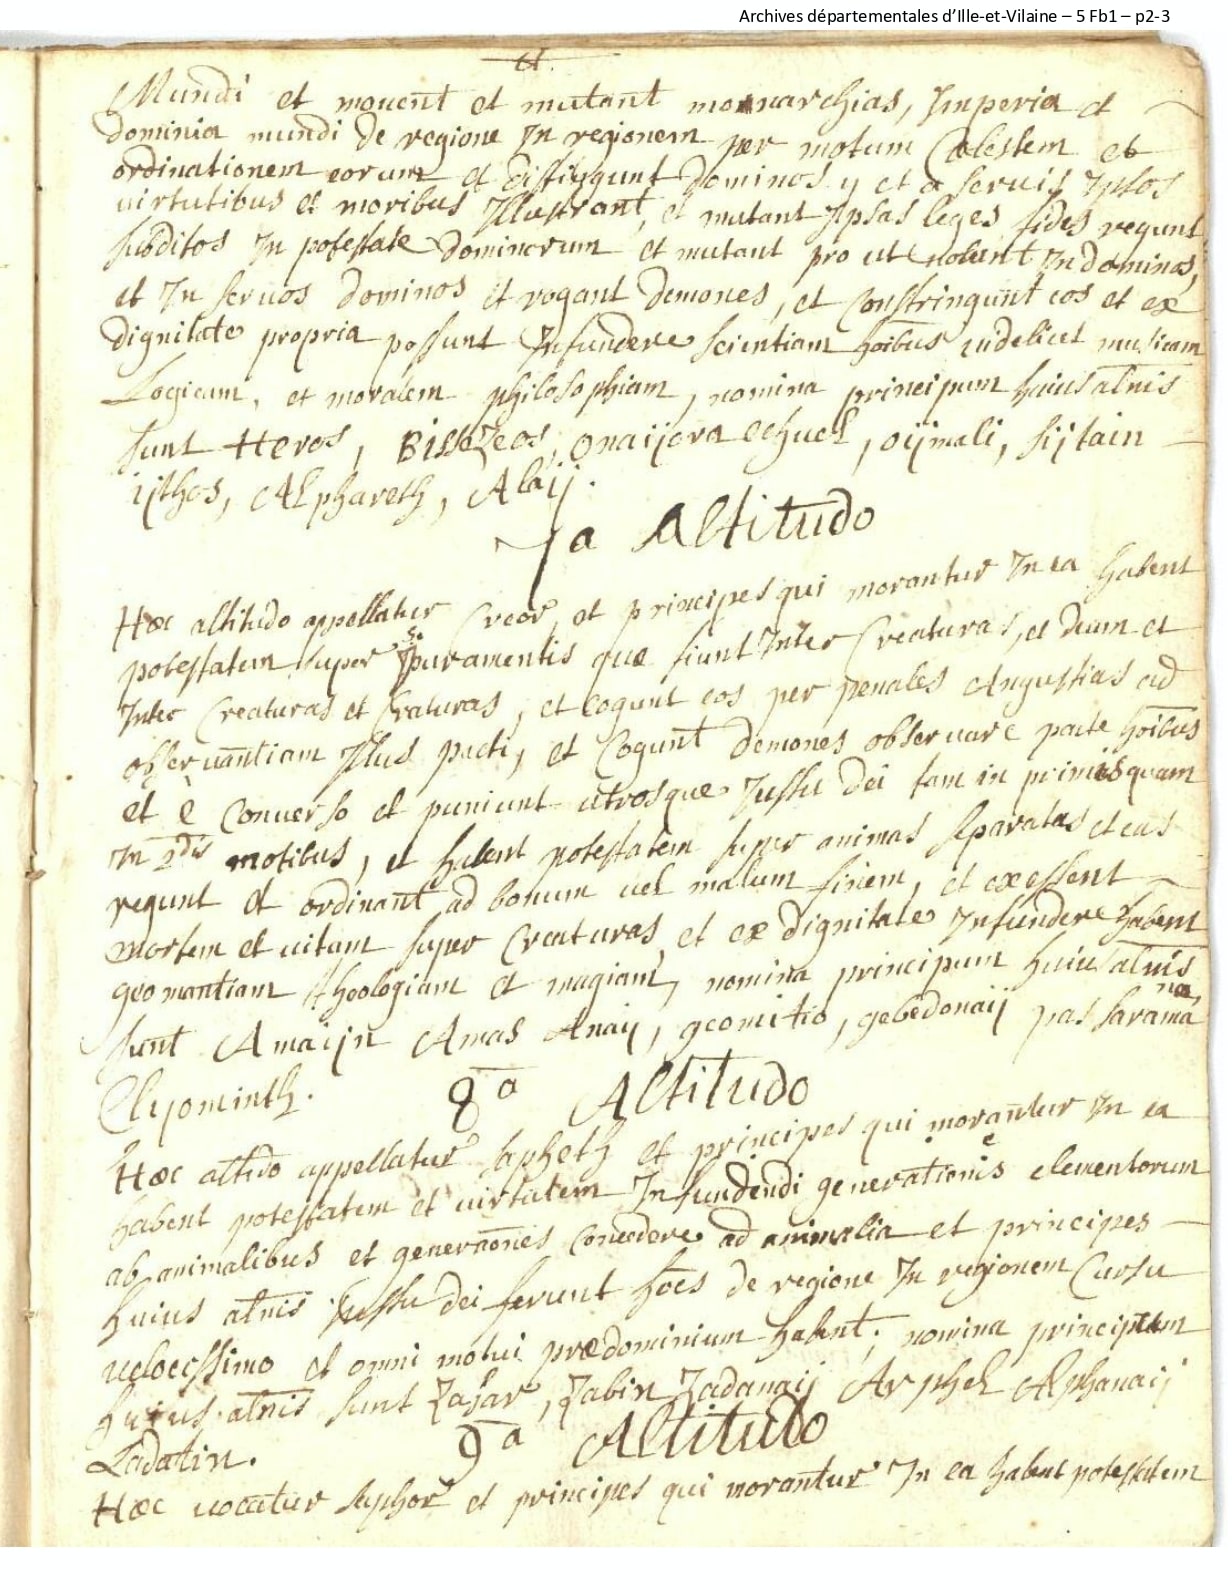 Archives départementales d'Ille-et-Vilaine – 5 Fb1 – p2-3
Mundi et mouent et mutant monarchias, Imperia et
dominia mundi de regione In regionem per motum Cælestem et
ordinationem eorum et distingunt dominos et a seruis Ipsos
uirtutibus et moribus Illustrant, et mutant Ipsas leges fides regunt
subditos In potestate dominorum et mutant pro ut uolunt In dominos,
et In seruos dominos et rogant demones, et Constringunt eos et ex
dignitate propria possunt Infundere scientiam hoibus uidelicet musicam
Logicam, et moralem philosophiam, nomina principum huius altnis
sunt Heros, Bissezeos, onaijora echuel, oijmali, sijtain
ijthos, Alphareth, Alaij.
7a Altitudo
Hæc altitudo appellatur Creor, et principes qui morantur In ea habent
potestatem super Iuramentis quæ fiunt Inter Creaturas, et deum et
Inter Creaturas et Craturas, et cogunt eos per penales Angustias ad
obseruantiam Illius pacti, et Cogunt demones obseruare pacte hoibus
et è Conuerso et puniunt utrosque Jussu dei tam in primis quam
In 2dis motibus, et habent potestatem super animas separatas et eas
regunt et ordinant ad bonum uel malum finem, et
mortem et uitam super Creaturas, et ex dignitate Infundere habent
geomantiam theologiam et magiam, nomina principum huius altnis
na
sunt Amaijn Amas Anaij, geomitio, gebedonaij passarama
Elyominth.
8a Altitudo
Hæc altido appellatur Japheth et principes qui morantur In ea
habent potestatem et uirtutem Infundendi generationis elementorum
ab animalibus et generaones concedere ad animalia et principes
huius altnis Jussu dei ferunt hoes de regione In regionem Cursu
uelocissimo et omni motui prædominium habent; nomina principum
huius altnis sunt Zasar, Zabin Zadanaij Arphel Alphanaij
Ladatin.
9a Altitudo
Hæc uocatur saphor et principes qui morantur In ea habent potestatem